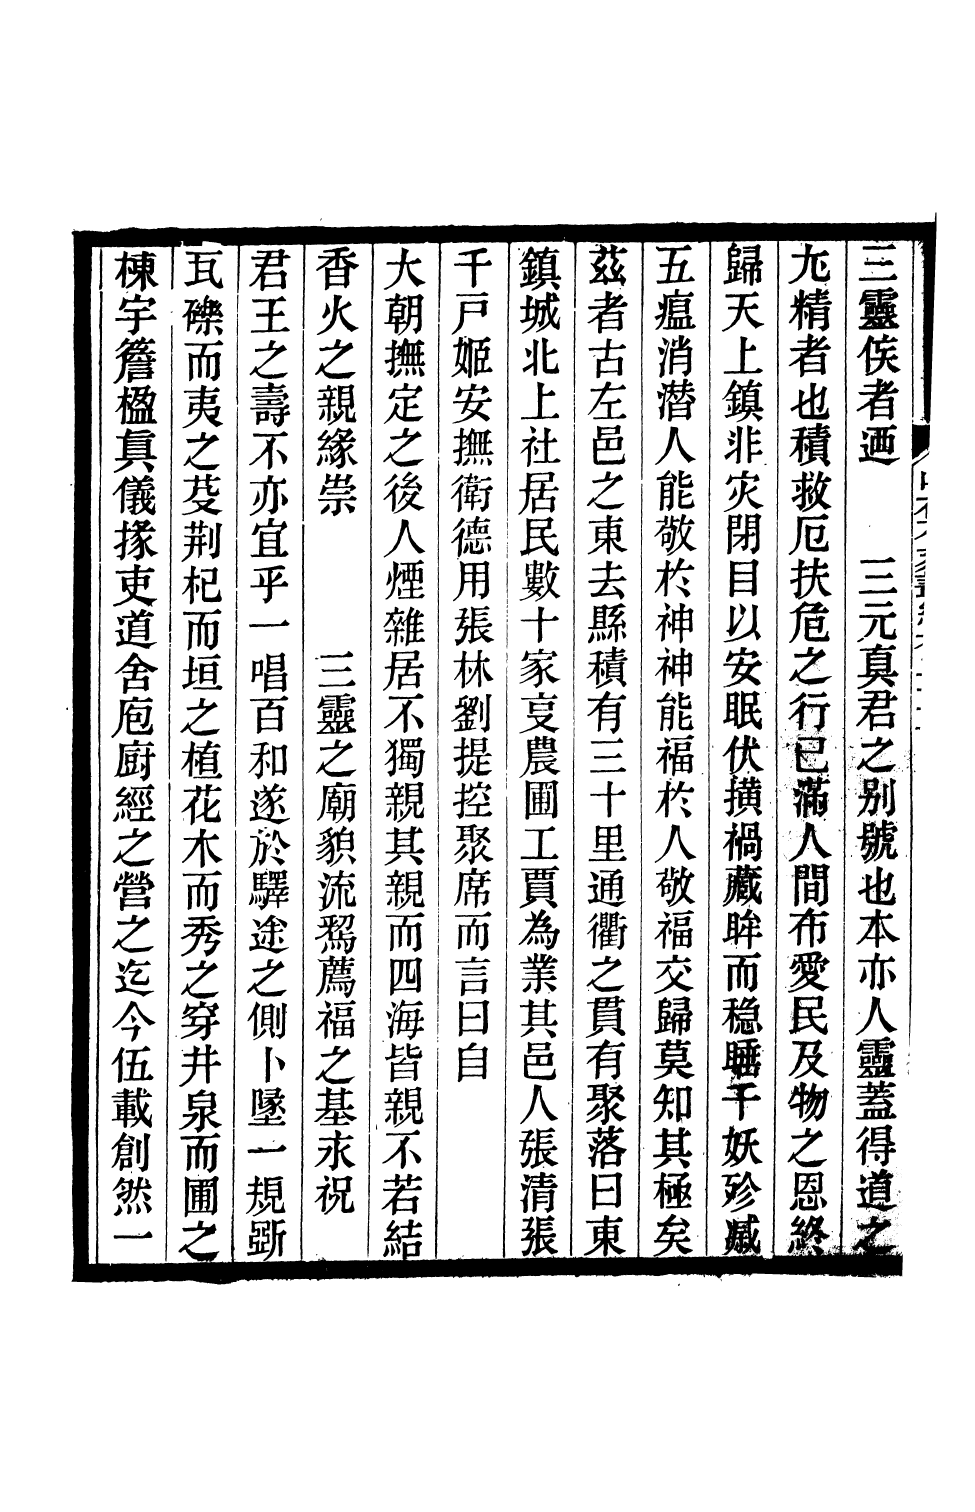 三靈侯者迺　三元真君之别號也本亦人靈蓋得道之
尤精者也積救厄扶危之行已滿人間布愛民及物之恩終
歸天上鎮非灾閉目以安眠伏撗禍藏眸而稳睡千妖殄滅
五瘟消潜人能敬扵神神能福扵人敬福交歸莫知其極矣
茲者古左邑之東去縣積有三十里通衢之貫有聚落曰東
鎮城北上社居民數十家㕝農圃工賈為業其邑人張清張
千戸姬安撫衛德用張林劉提控聚席而言曰自
大朝撫定之後人煙雜居不獨親其親而四海皆親不若結
香火之親緣崇　三靈之廟貌流爲薦福之基永祝
君王之壽不亦宜乎一唱百和遂於驛途之側卜墬一規斵
瓦礫而夷之芟荆杞而垣之植花木而秀之穿井泉而圃之
棟宇簷楹眞儀掾吏道舍庖厨經之營之迄今伍載創然一